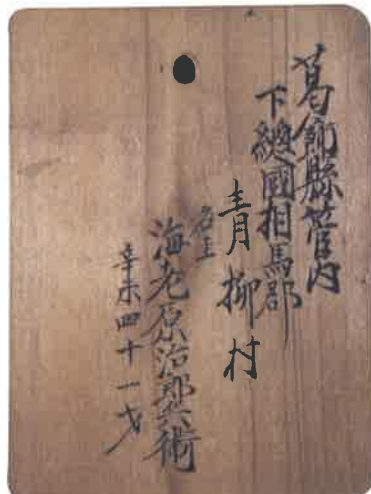 葛飾縣管内
下總國相馬郡
青柳村
名主
海老原治郎兵衛
辛未四十一才